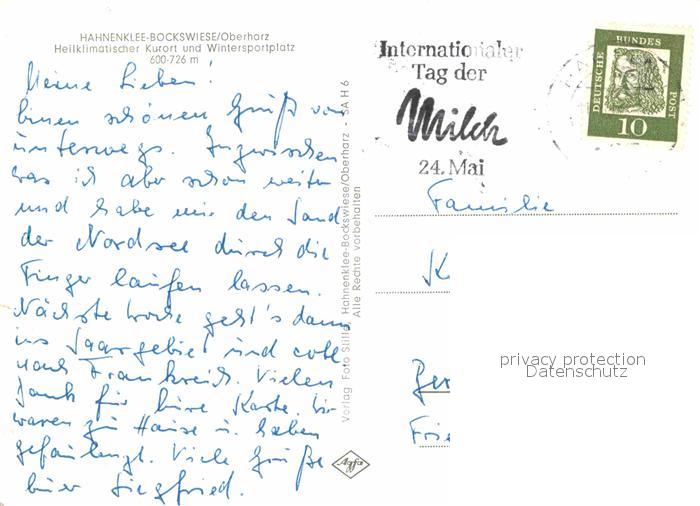 HAHNENKLEE-BOCKSWIESE/Oberharz
Heilklimatischer Kurort und Wintersportplatz
600-726 m
Meine Lieben!
Einen schönen Gruß von
unterwegs. Inzwischen
war ich aber schon weiter
und habe mir den Sand
der Nordsee durch die
Finger laufen lassen.
Nächste Woche geht's dann
ins Saargebiet und evtl.
nach Frankreich. Vielen
Dank für Eure Karte. Wir
waren zu Hause u. haben
gefaulenzt. Viele Grüße
Euer Siegfried.
Verlag Foto Stille, Hahnenklee-Bockswiese/Oberharz - SA H 6
Alle Rechte vorbehalten
Agfa
Internationaler
Tag der
Milch
24. Mai
DEUTSCHE BUNDES POST
10
Familie
K
Ber
Frie
privacy protection
Datenschutz